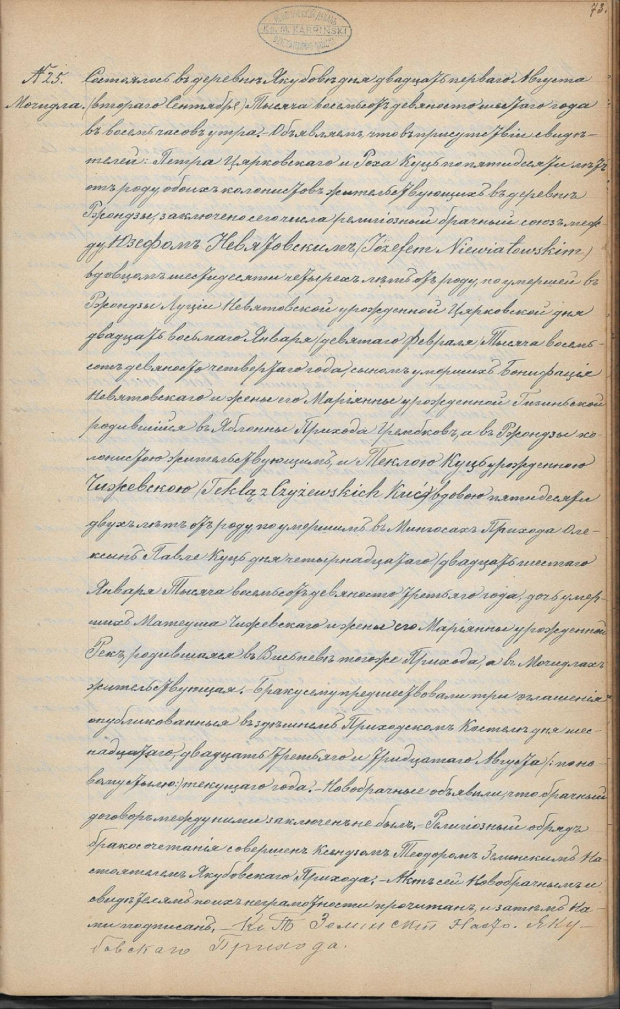 73.
№ 25.
Могидла.
Состоялось въ деревнѣ Якубовѣ дня двадцать перваго Августа
/втораго Сентября/ Тысяча восемьсотъ девяносто шестаго года
въ восемь часовъ утра. Объявляемъ что въ присутствіи свидѣ-
телей: Петра Цярковскаго и Роха Куць по пятидесяти лѣтъ
отъ роду обоихъ колонистовъ жительствующихъ въ деревнѣ
Ржондзы, заключено сего числа религіозный брачный союзъ меж-
ду Юзефомъ Невятовскимъ /Józefem Niewiatowskim/
вдовцомъ шестидесяти четырехъ лѣтъ отъ роду, по умершей въ
Ржондзы Луціи Невятовской урожденной Цярковской дня
двадцать восьмаго Января /девятаго Февраля Тысяча восемь-
сотъ девяносто четвертаго года, сыномъ умершихъ Бонифація
Невятовскаго и жены его Маріанны урожденной
родившійся въ Яблонны Прихода а въ Ржондзы ко-
лонистою жительствующимъ, и Теклою Куць урожденною
Чижевскою /Teklą z Czyżewskich Kuć/ вдовою пятидесяти
двухъ лѣтъ отъ роду по умершимъ въ Мингосахъ Прихода Оле-
ксинъ Павле Куць дня четырнадцатаго /двадцать шестаго
Января Тысяча восемьсотъ девяносто третьяго года, дочь умер-
шихъ Матеуша Чижевскаго и жены его Маріанны урожденной
Рекъ, родившаяся въ Вишневѣ тогоже Прихода, а въ Могидлахъ
жительствующая. Браку сему предшествовали три оглашенія
опубликованныя въ здѣшнемъ Приходскомъ Костелѣ дня шес-
надцатаго, двадцать третьяго и тридцатаго Августа /: по но-
вому стылю:/ текущаго года. – Новобрачные объявили, что брачный
договоръ между ними заключенъ не былъ. – Религіозный обрядъ
бракосочетанія совершенъ Ксендзомъ Теодоромъ Землискимъ На-
стоятелемъ Якубовскаго Прихода. – Актъ сей Новобрачнымъ и
свидѣтелямъ по ихъ неграмотности прочитанъ, и затѣмъ На-
ми подписанъ. – Кс Т Землискій Насто. Яку-
бовскаго Прихода.